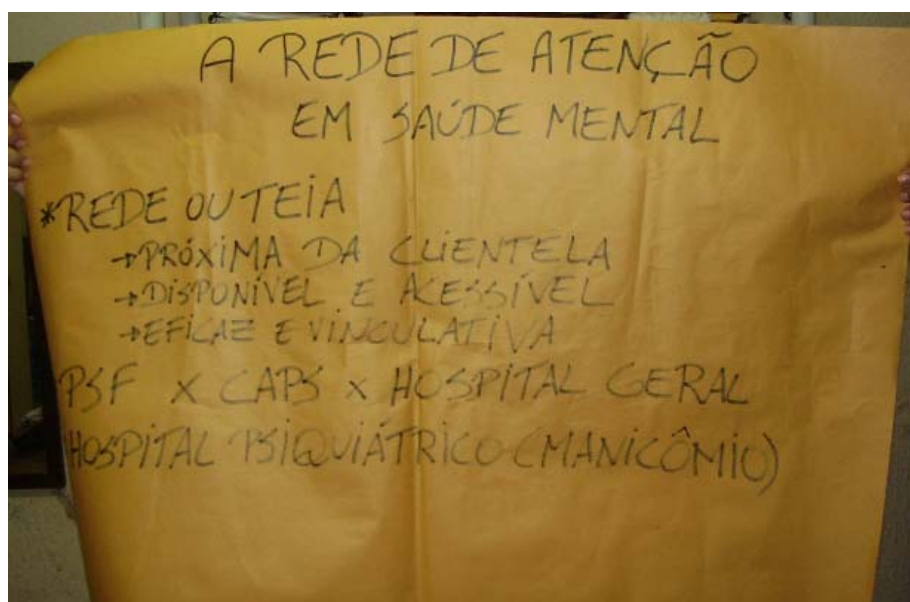 A REDE DE ATENÇÃO
EM SAÚDE MENTAL
*REDE OU TEIA
→PRÓXIMA DA CLIENTELA
→DISPONÍVEL E ACESSÍVEL
→EFICAZ E VINCULATIVA
PSF X CAPS X HOSPITAL GERAL
HOSPITAL PSIQUIÁTRICO (MANICÔMIO)